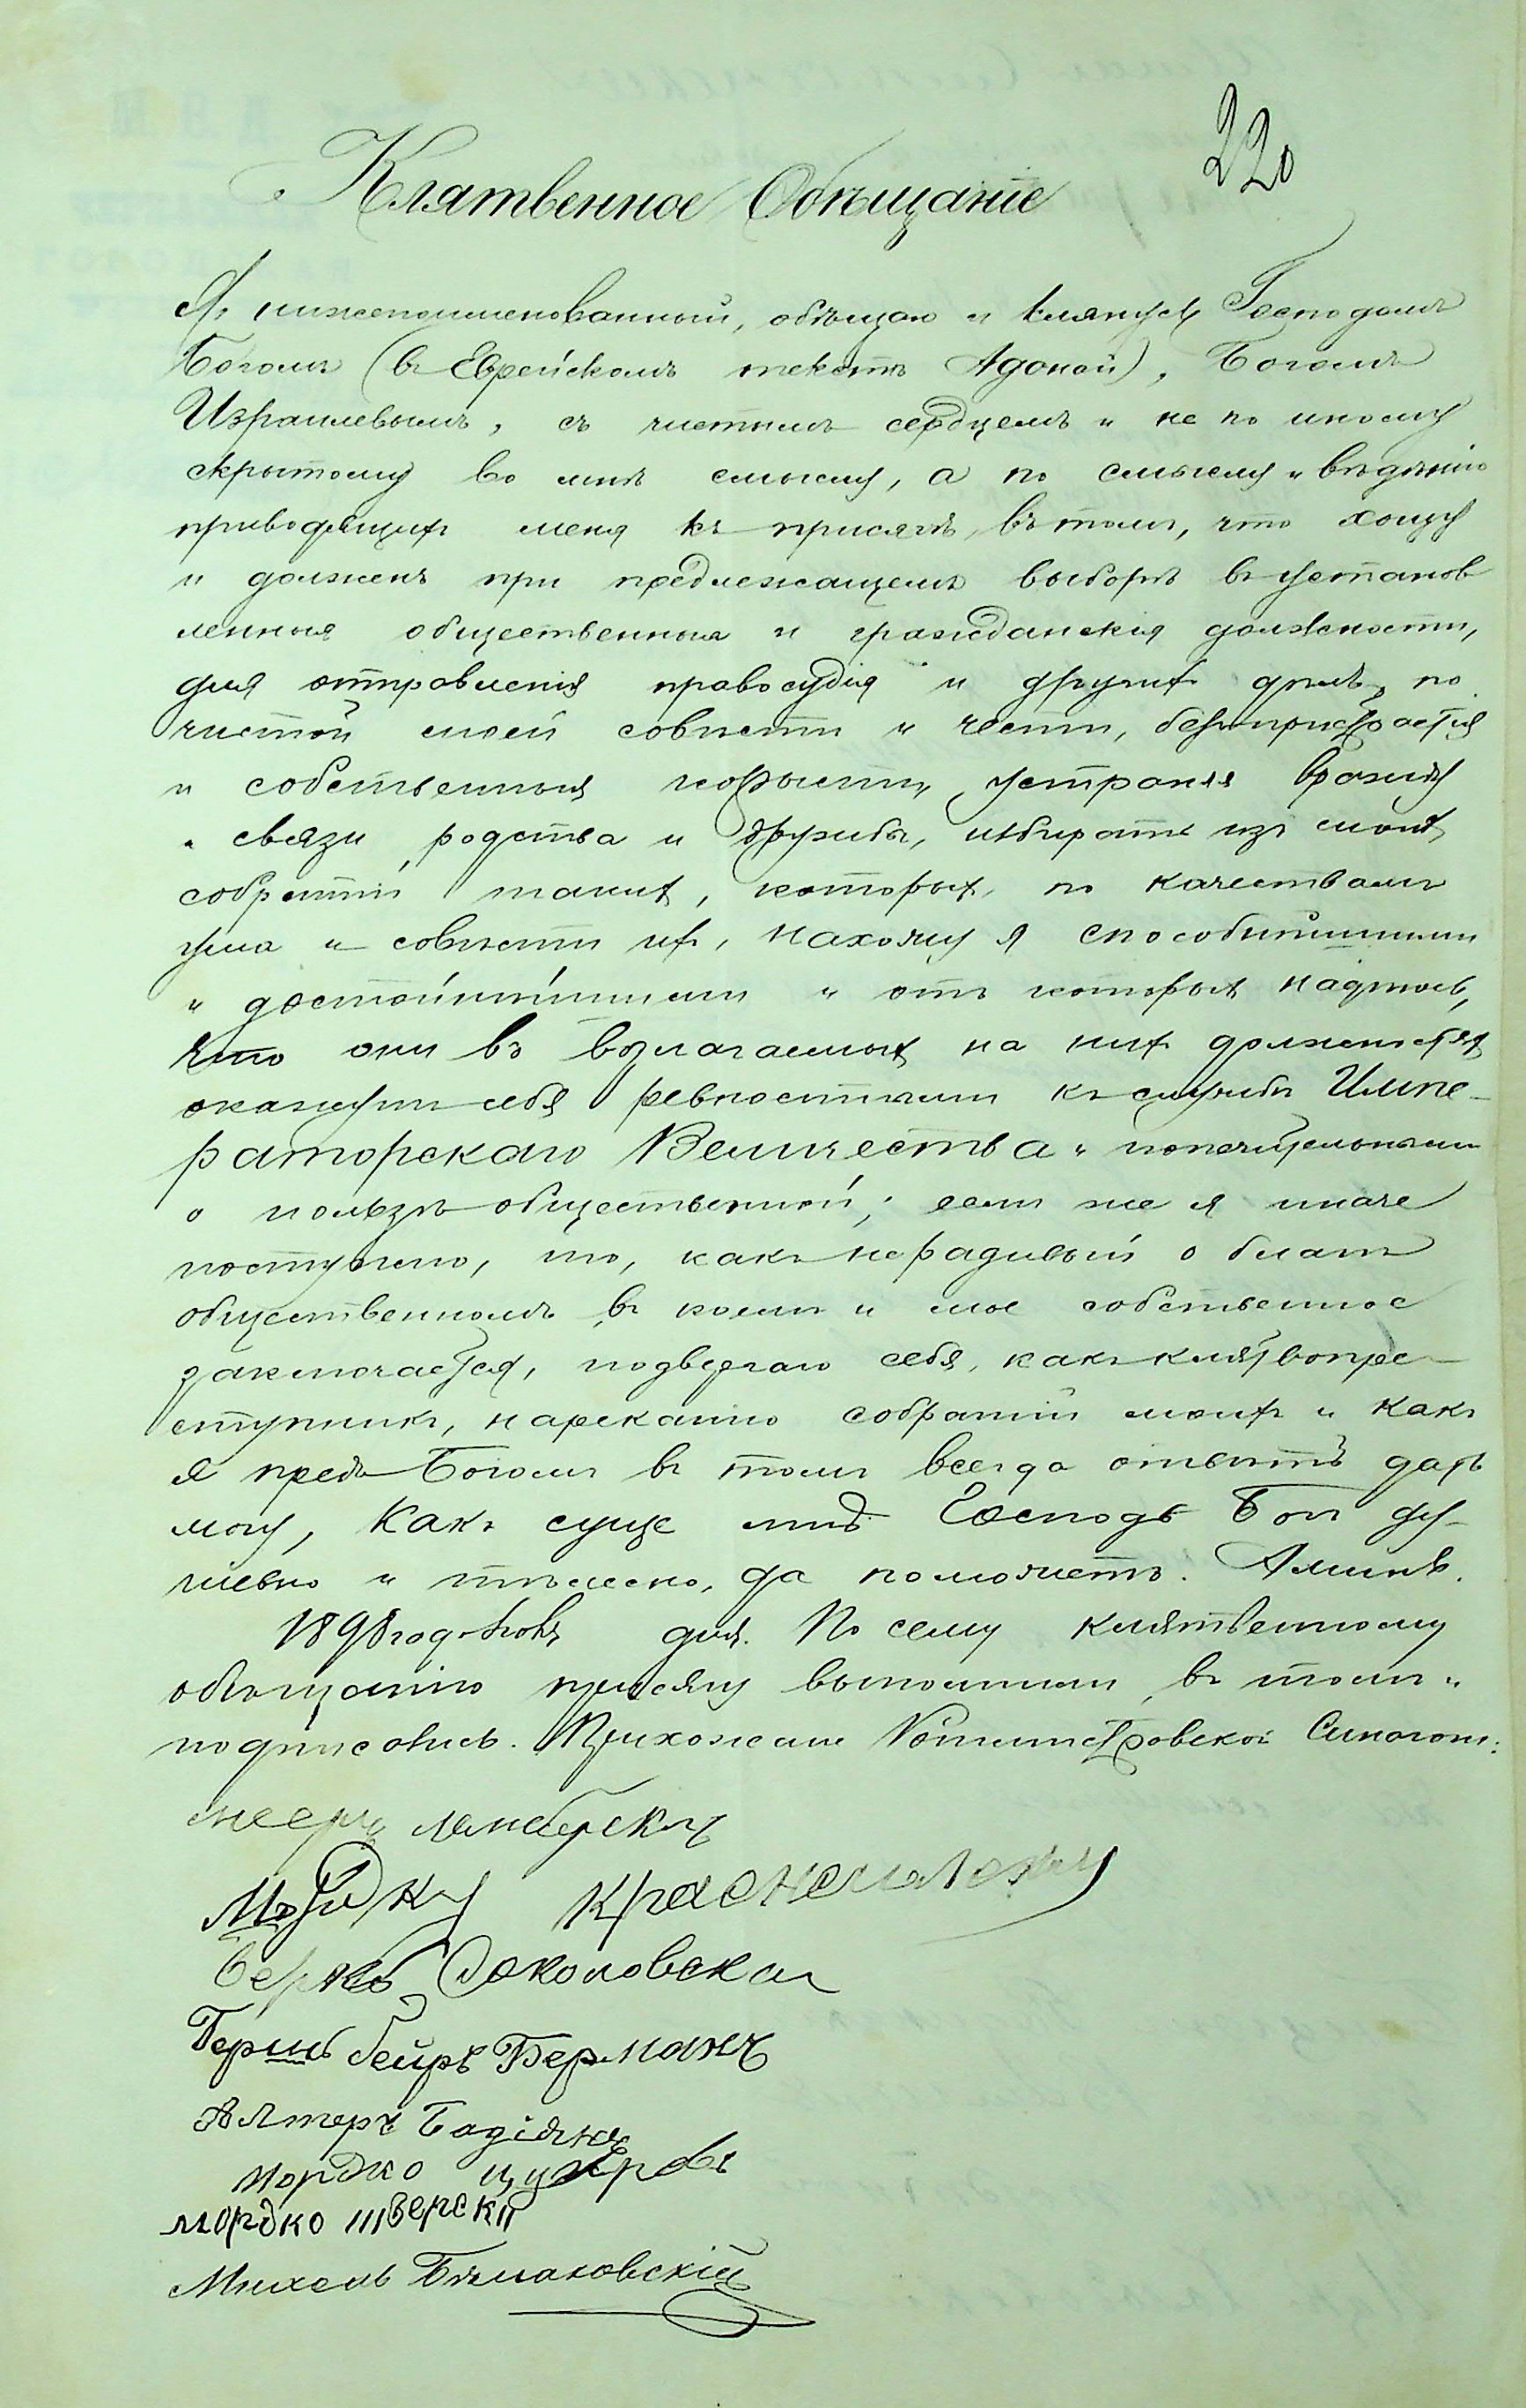 220
Клятвенное Обѣщаніе
Я, нижепоименованный, обѣщаю и клянусь Господомъ
Богомъ (въ Еврейскомъ текстѣ Адонай), Богомъ
Израилевымъ, съ чистымъ сердцемъ и не по иному
скрытому во мнѣ смыслу, а по смыслу и вѣдѣнію
приводящихъ меня къ присягѣ, въ томъ, что хощу
и долженъ при предлежащемъ выборѣ въ установ
ленныя общественныя и гражданскія должности,
для отправленія правосудія и другихъ дѣлъ, по
чистой моей совѣсти и чести, безъ пристрастія
и собственныя корысти, устраняя вражду
и связи родства и дружбы, избирать изъ моихъ
собратій такихъ, которыхъ, по качествамъ
ума и совѣсти ихъ, нахожу я способнѣйшими
и достойнѣйшими и отъ которыхъ надѣюсь,
что они въ возлагаемыхъ на нихъ должностяхъ
окажутъ себя ревностными къ службѣ Импе-
раторскаго Величества и попечительными
о пользѣ общественной; если же я иначе
поступлю, то, какъ нерадивый о благѣ
общественномъ, въ коемъ и мое собственное
заключается, подвергаю себя, какъ клятвопре-
ступникъ, нареканію собратій моихъ и какъ
я предъ Богомъ въ томъ всегда отвѣтъ дать
могу, какъ суще мнѣ Господь Богъ ду-
шевно и тѣлесно, да поможетъ. Аминь.
1898 года дня. По сему клятвенному
обѣщанію присягу выполнили, въ томъ и
подписались. Прихожане Синагоги:
Мееръ
Мордко
Берко Соколовскі
Гершъ Беиръ Берманъ
Алтеръ Бадіянъ
Мордко Цукровъ
Мордко Тверскі
Михель Бѣлаковскій